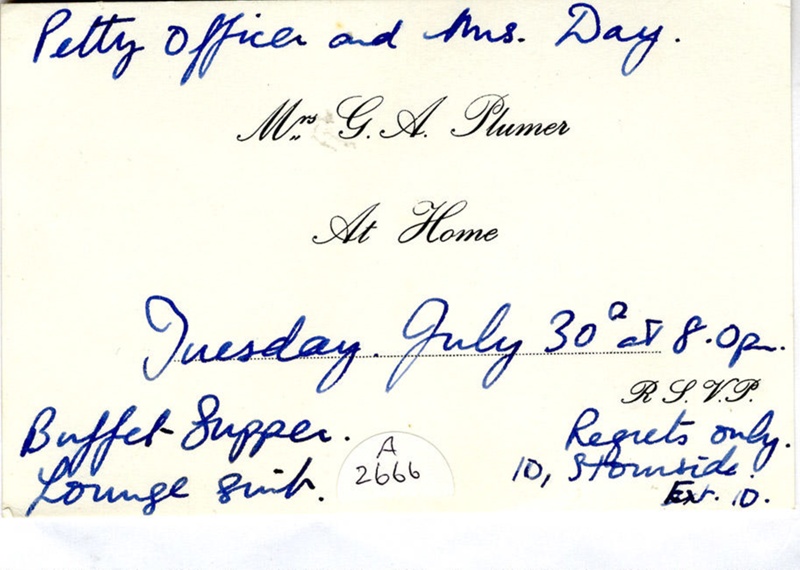 Petty Officer and Mrs. Day.
Mrs G. A. Plumer
At Home
Tuesday. July 30th at 8.0pm.
R.S.V.P.
Buffet Supper.
Regrets only.
Lounge suit.
10,
Ext. 10.
A
2666